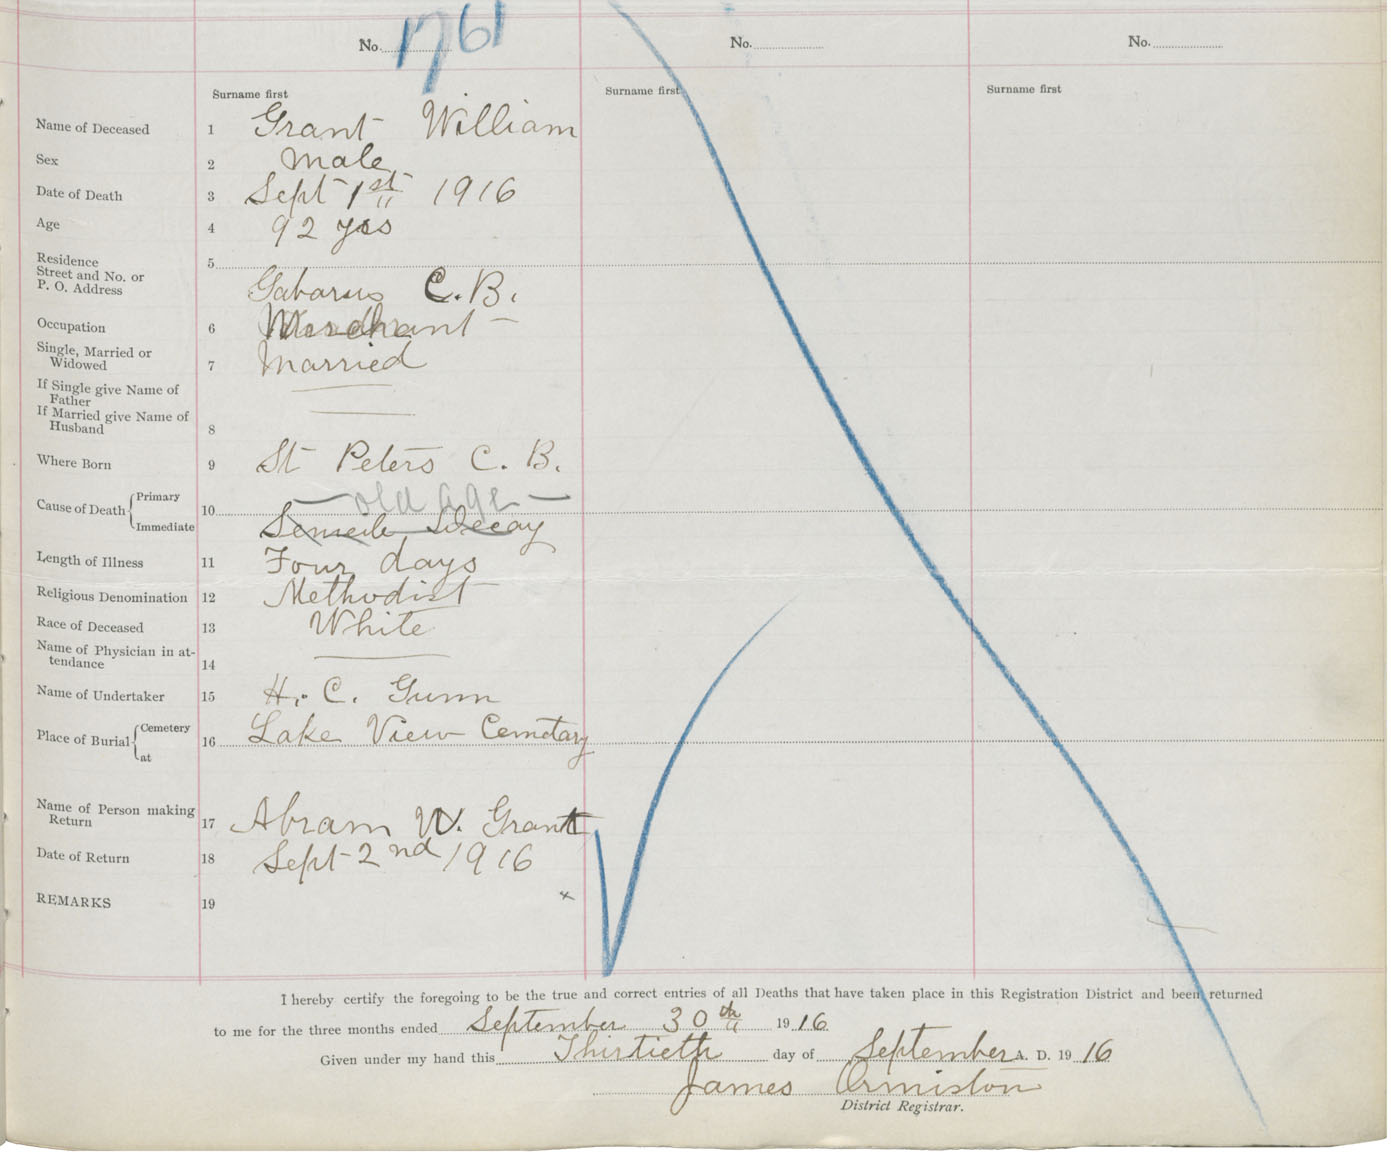 No. 1761 No. No.
Surname first Surname first Surname first
Name of Deceased 1 Grant William
Sex 2 Male
Date of Death 3 Sept 1st 1916
Age 4 92 yrs
Residence 5
Street and No. or
P. O. Address Gabarus C.B.
Occupation 6 Merchant
Single, Married or
Widowed 7 Married
If Single give Name of
Father
If Married give Name of
Husband 8
Where Born 9 St Peters C. B.
Cause of Death Primary old age
10
Immediate Decay
Length of Illness 11 Four days
Religious Denomination 12 Methodist
Race of Deceased 13 White
Name of Physician in at-
tendance 14
Name of Undertaker 15 H. C. Gunn
Place of Burial Cemetery 16 Lake View Cemetary
at
Name of Person making
Return 17 Abram W. Grant
Date of Return 18 Sept 2nd 1916
REMARKS 19 x
I hereby certify the foregoing to be the true and correct entries of all Deaths that have taken place in this Registration District and been returned
to me for the three months ended September 30th 1916
Given under my hand this Thirtieth day of September A. D. 1916
James Ormiston
District Registrar.